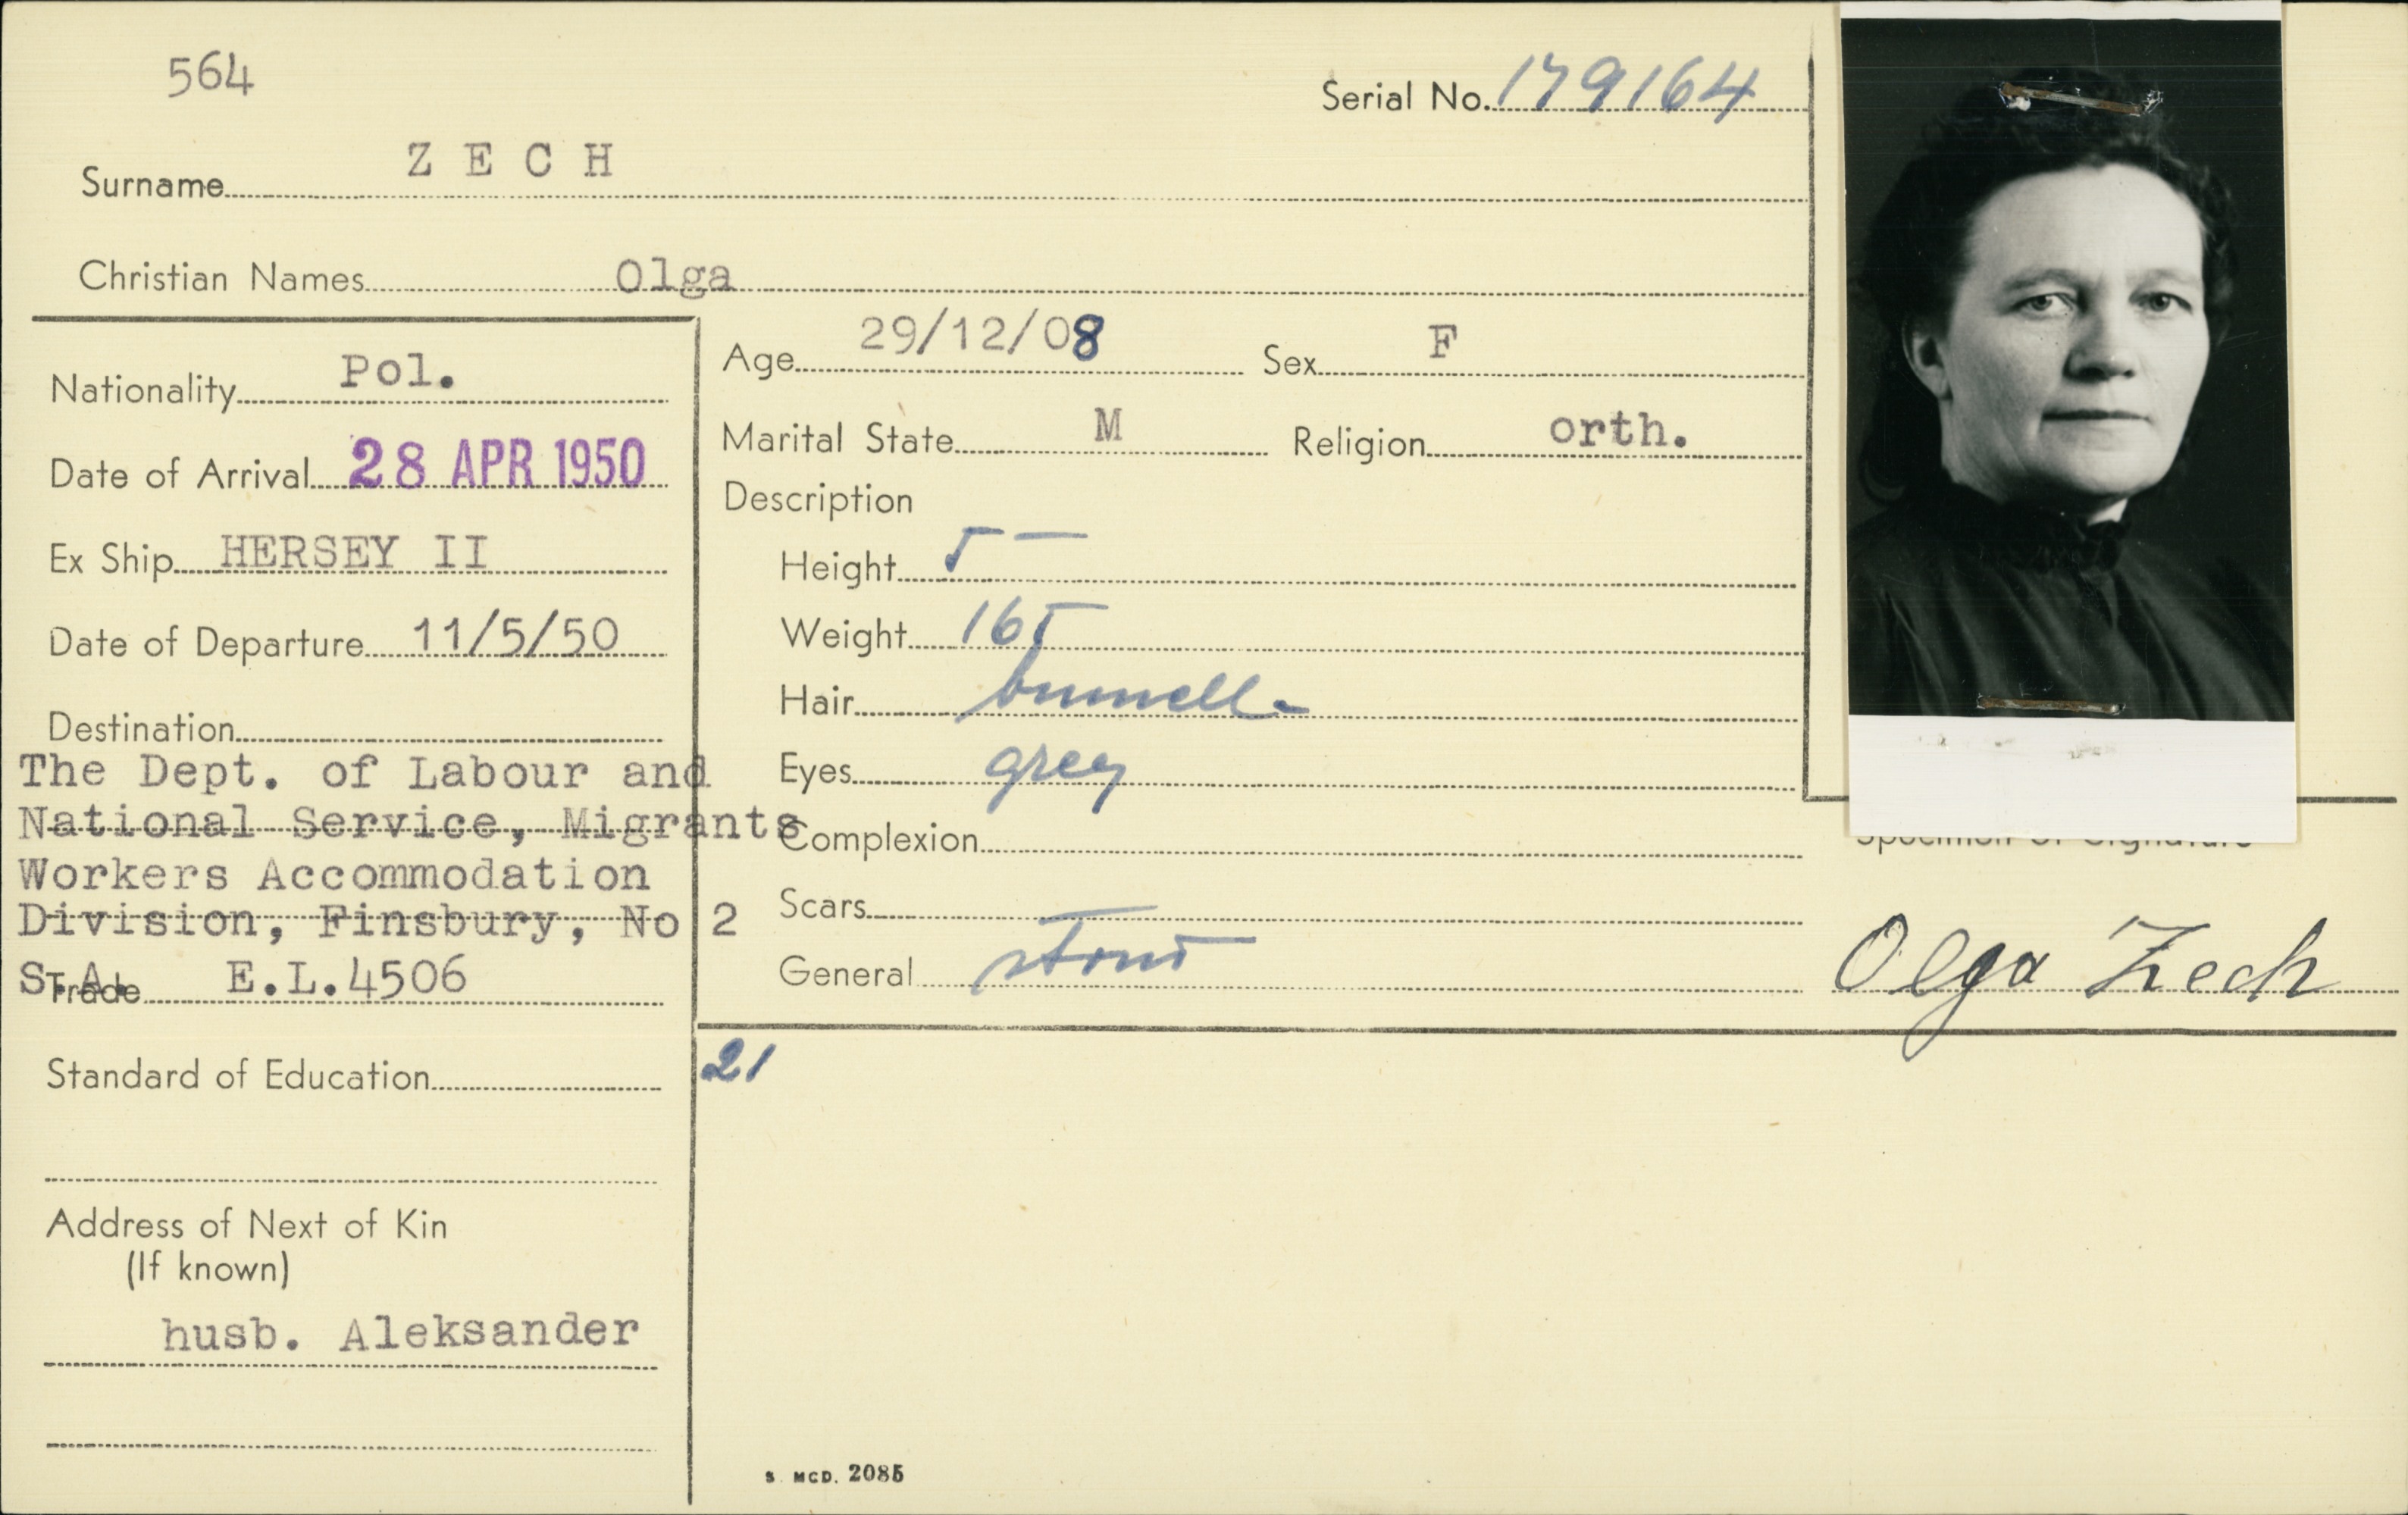 564
Serial No. 179164
Surname Z E C H
Christian Names Olga
Nationality Pol.
Date of Arrival 28 APR 1950
Ex Ship HERSEY II
Date of Departure 11/5/50
Destination
The Dept. of Labour and
National Service, Migrants
Workers Accommodation
Division, Finsbury, No 2
S.A.
Trade E.L.4506
Standard of Education
Address of Next of Kin
(If known)
husb. Aleksander
Age 29/12/08 Sex F
Marital State M Religion orth.
Description
Height 5 —
Weight 165
Hair
Eyes grey
Complexion
Scars
General stout
Specimen of Signature
Olga Zech
21
S. MCD. 2085